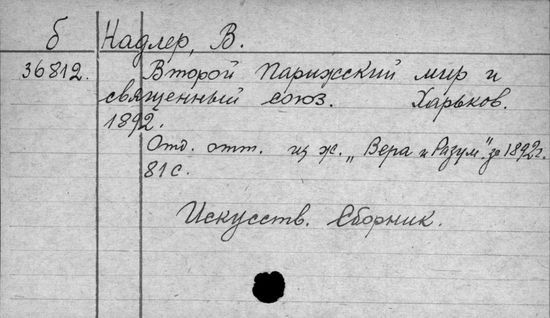 б Надлер, В.
36812. Второй Парижский мир и
священный союз. Харьков.
1892.
Отд. отт. из ж. „Вера и Разум." за 1892г.
81 с.
Искусств. Сборник.